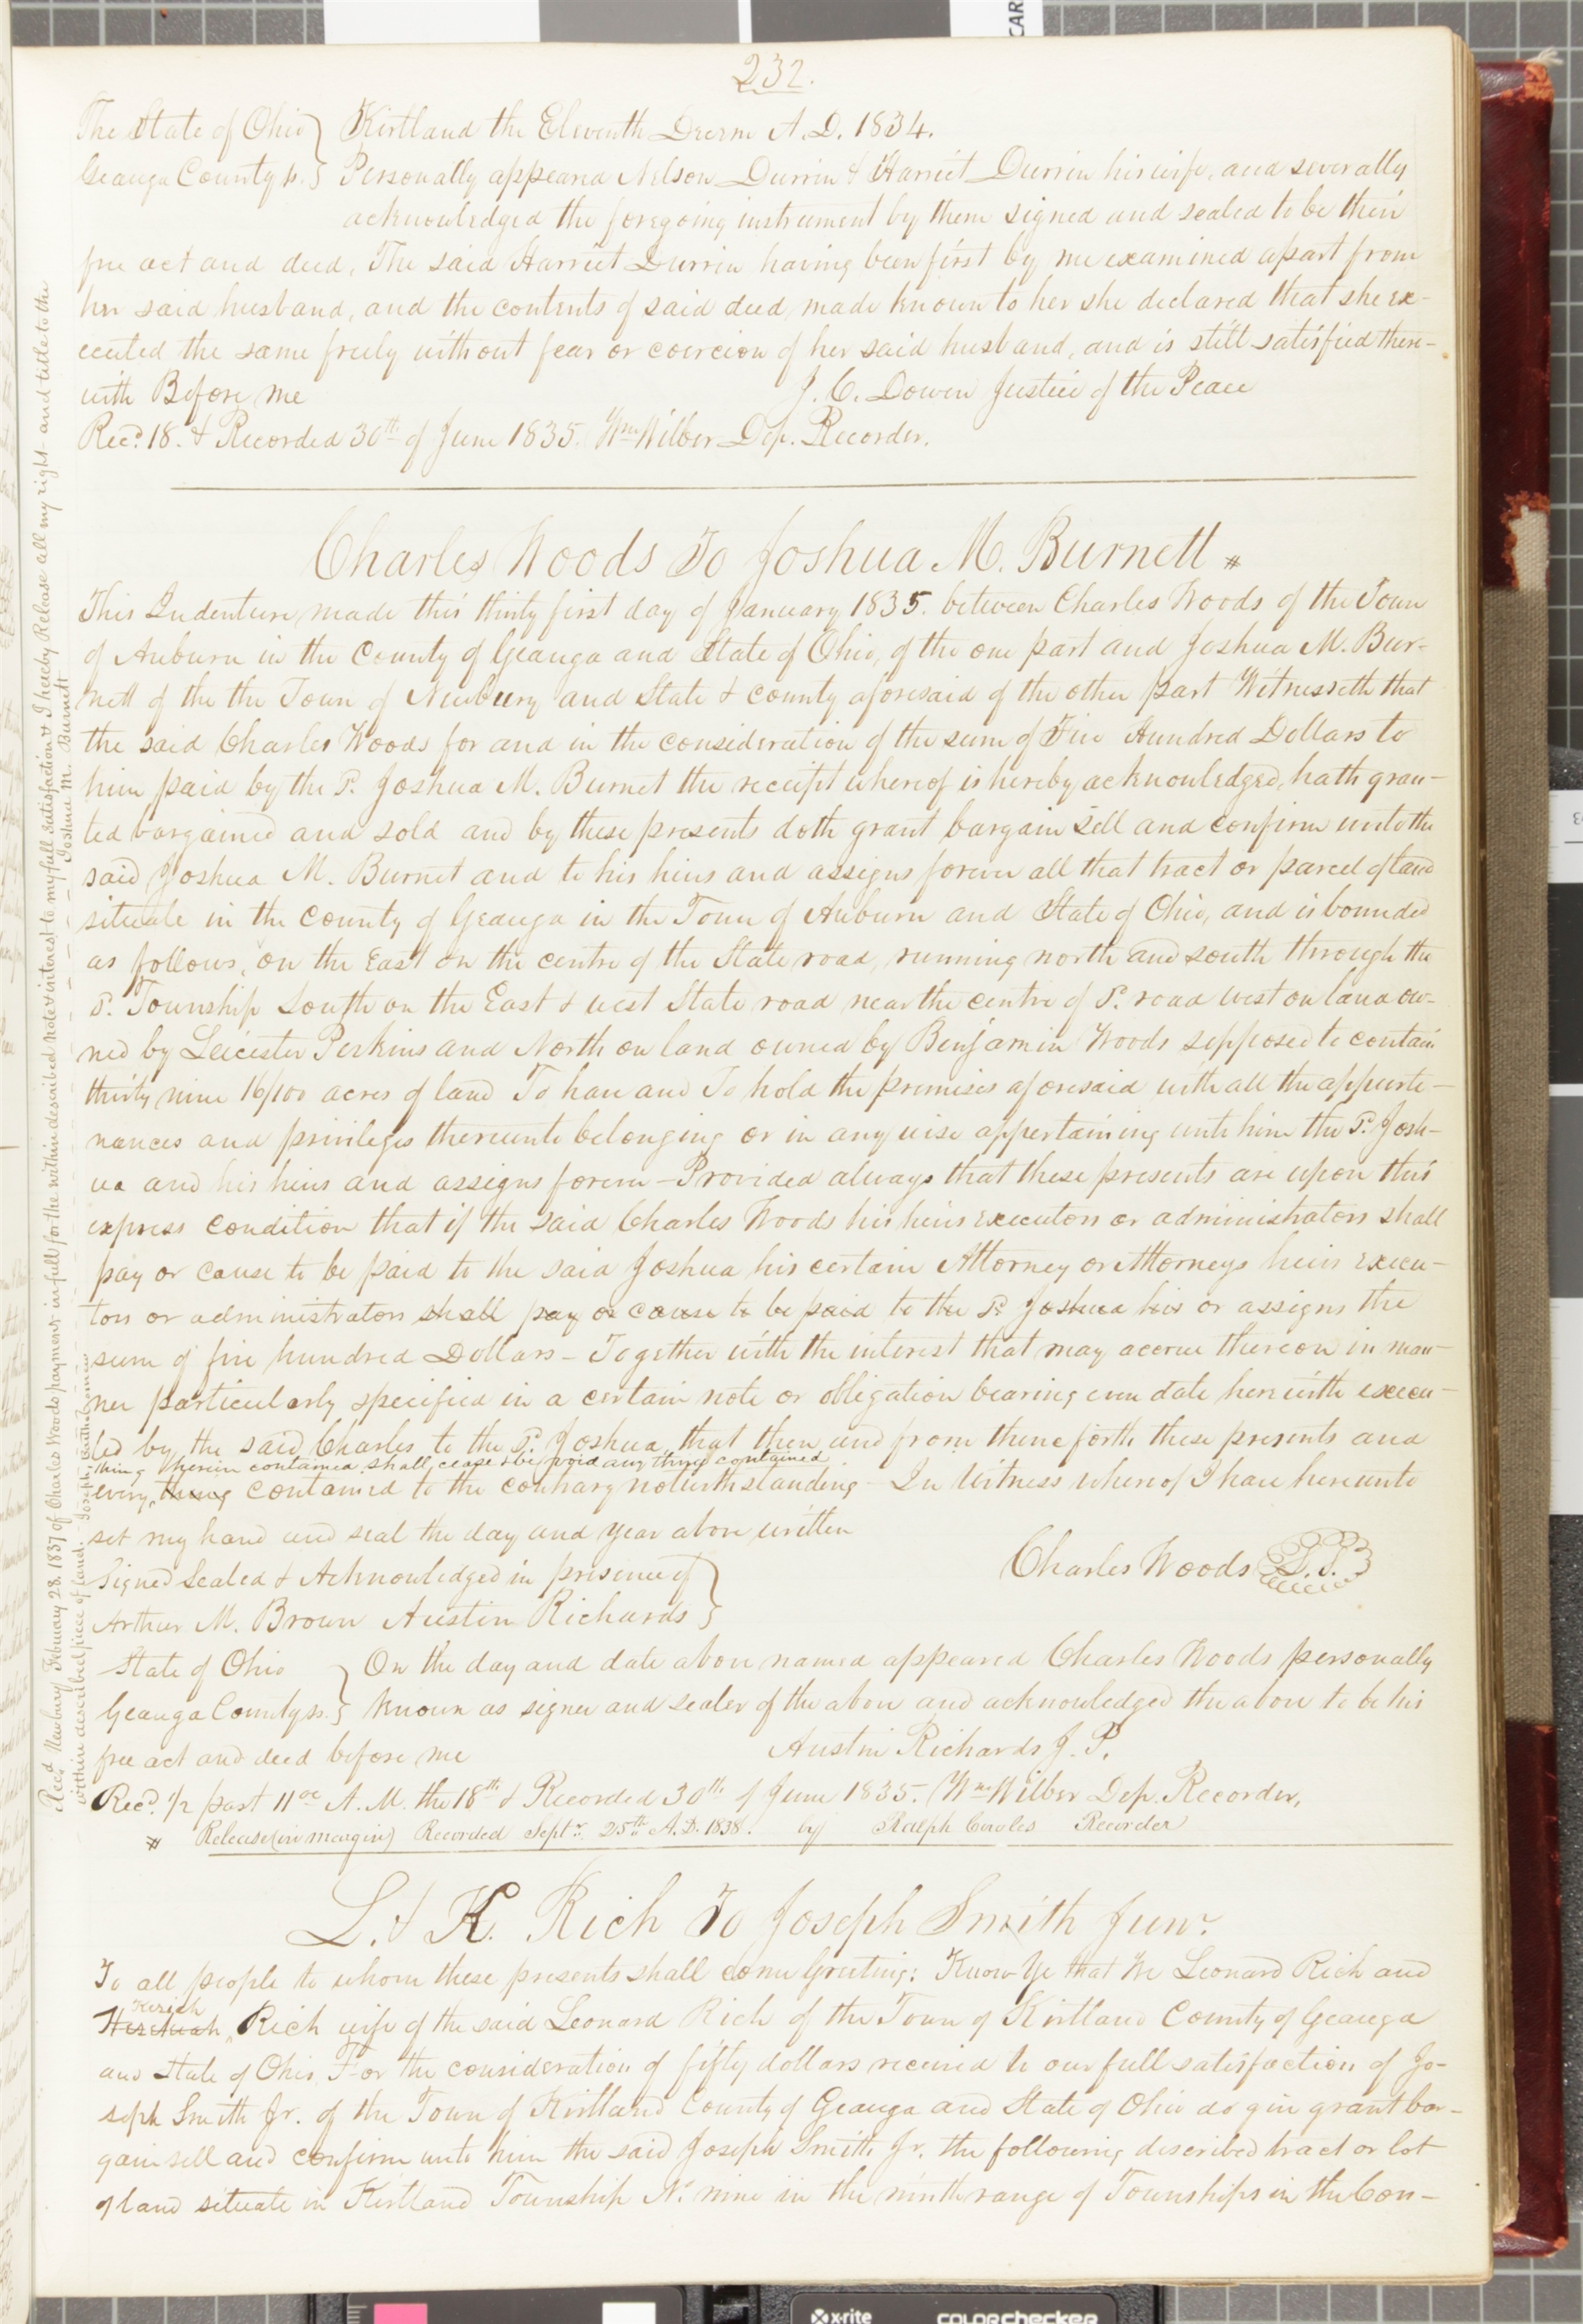 232.
The State of Ohio } Kirtland the Eleventh Decem A.D. 1834.
Geauga County ss. } Personally appeared Nelson Durrin & Harriet Durrin his wife, and severally
acknowledged the foregoing instrument by them signed and sealed to be their
free act and deed, The said Harriet Durrin having been first by me examined apart from
her said husband, and the contents of said deed, made known to her she declared that she ex-
ecuted the same freely without fear or coercion of her said husband, and is still satisfied there-
with Before me J. C. Dowen Justice of the Peace
Recd. 18. & Recorded 30th of June 1835. Wm Wilber Dep. Recorder.
Charles Woods To Joshua M. Burnett #
This Indenture made this thirty first day of January 1835. between Charles Woods of the Town
of Auburn in the County of Geauga and State of Ohio, of the one part and Joshua M. Bur-
nett of the the Town of Newbury and State & county aforesaid of the other part Witnesseth that
the said Charles Woods for and in the consideration of the sum of Five Hundred Dollars to
him paid by the Sd. Joshua M. Burnet the receipt whereof is hereby acknowledged, hath gran-
ted bargained and sold and by these presents doth grant bargain sell and confirm unto the
said Joshua M. Burnet and to his heirs and assigns forever all that tract or parcel of land
situate in the County of Geauga in the Town of Auburn and State of Ohio, and is bounded
as follows, on the East on the centre of the State road, running north and south through the
Sd. Township South on the East & west State road near the centre of Sd. road west on land ow-
ned by Leicester Perkins and North on land owned by Benjamin Woods supposed to contain
thirty nine 16/100 acres of land To have and To hold the premises aforesaid with all the appurte-
nances and privileges thereunto belonging or in any wise appertaining unto him the Sd. Josh-
ua and his heirs and assigns forever - Provided always that these presents are upon this
express condition that if the said Charles Woods his heirs executors or administrators shall
pay or cause to be paid to the said Joshua his certain Attorney or Attorneys heirs execu-
tors or administrators shall pay or cause to be paid to the Sd. Joshua his or assigns the
sum of five hundred Dollars - Together with the interest that may accrue thereon in man-
ner particularly specified in a certain note or obligation bearing even date herewith execu-
ted by the said Charles to the Sd. Joshua, that then and from thenceforth these presents and
thing therein contained shall cease & be void any thing contained
every thing contained to the contrary notwithstanding - In Witness whereof I have hereunto
set my hand and seal the day and year above written
Signed Sealed & Acknowledged in presence of } Charles Woods L.S.
Arthur M. Brown Austin Richards }
State of Ohio } On the day and date above named appeared Charles Woods personally
Geauga County ss. } known as signer and sealer of the above and acknowledged the above to be his
free act and deed before me Austin Richards J. P.
Recd. 1/2 past 11 oc A. M. the 18th & Recorded 30th of June 1835. Wm Wilber Dep. Recorder,
# Release (in margin) Recorded Septr. 25th A.D. 1838. by Ralph Cowles Recorder
L. & K. Rich To Joseph Smith Junr.
To all people to whom these presents shall come Greeting: Know Ye that We Leonard Rich and
Keziah
Rich wife of the said Leonard Rich of the Town of Kirtland County of Geauga
and State of Ohio, For the consideration of fifty dollars received to our full satisfaction of Jo-
seph Smith Jr. of the Town of Kirtland County of Geauga and State of Ohio do give grant bar-
gain sell and confirm unto him the said Joseph Smith Jr. the following described tract or lot
of land situate in Kirtland Township No. nine in the ninth range of Townships in the Con-
Recd. Newbury February 28. 1837 of Charles Woods payment in full for the within described note & interest to my full satisfaction & I hereby Release all my right and title to the
within described piece of land. Joshua M. Burnett
x-rite
colorchecker
CAR